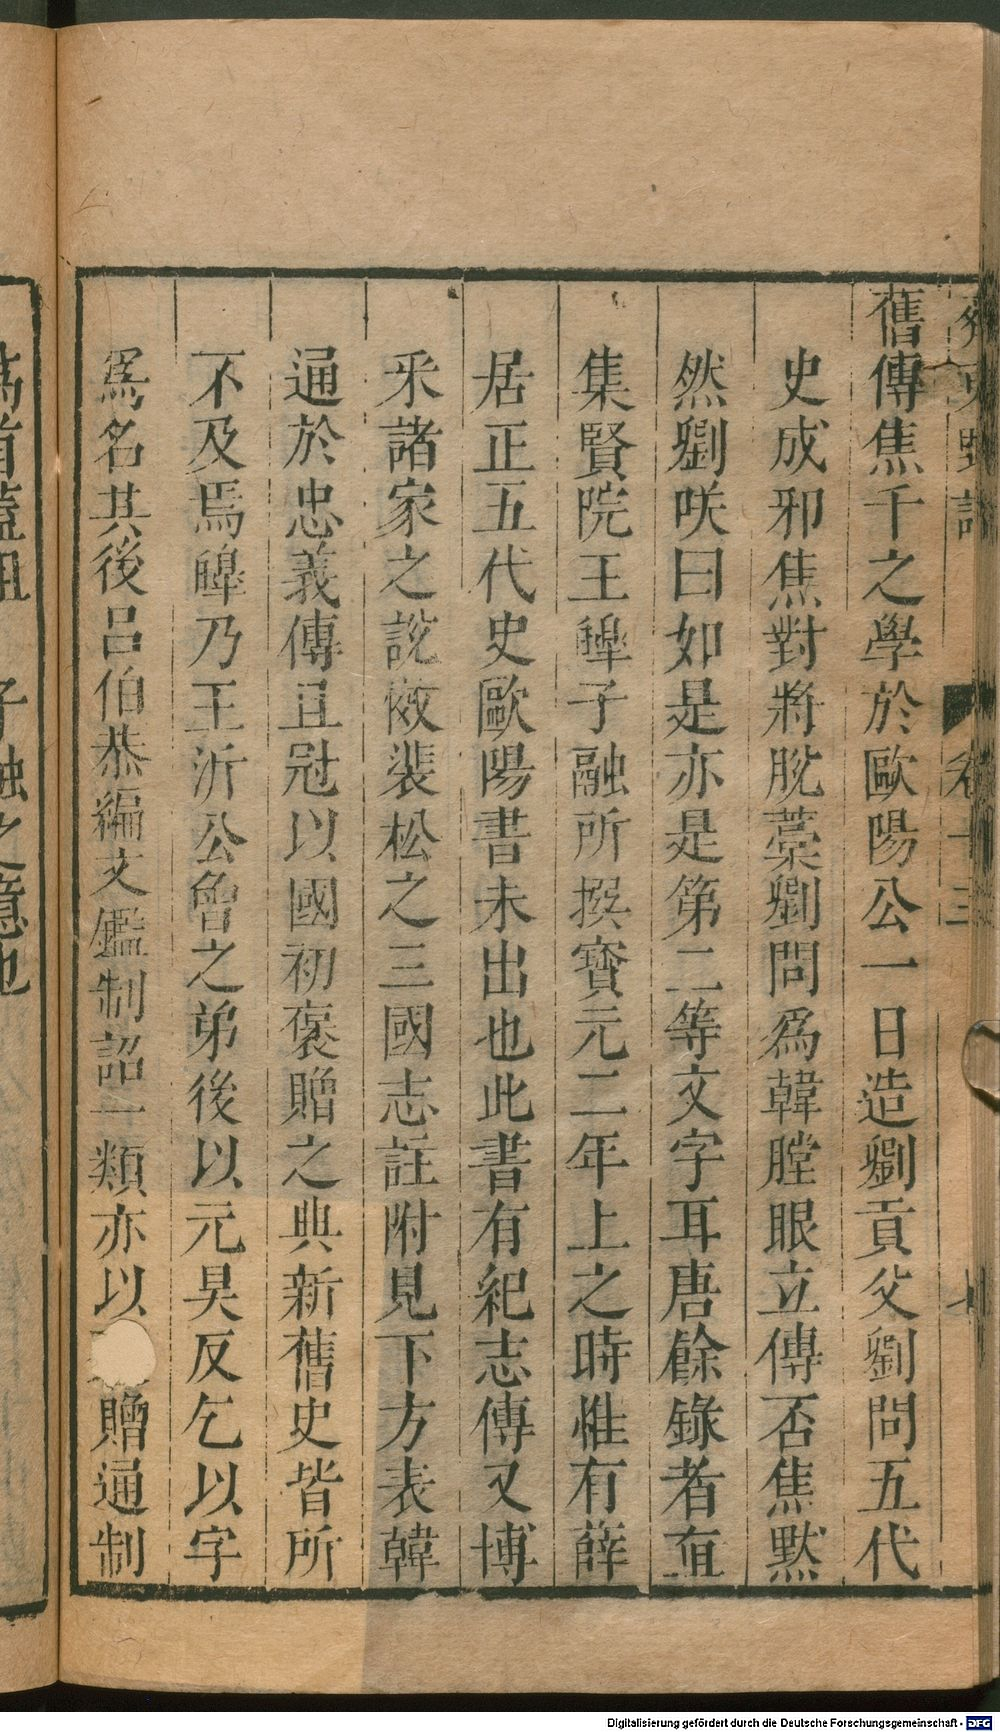 齊東野語
卷十三
七
舊傳焦千之學於歐陽公一日造劉貢父劉問五代
史成邪焦對將脫藁劉問爲韓瞠眼立傳否焦黙
然劉咲曰如是亦是第二等文字耳唐餘錄者直
集賢院王皥子融所撰寳元二年上之時惟有薛
居正五代史歐陽書未出也此書有紀志傳又博
采諸家之說倣裴松之三國志註附見下方表韓
通於忠義傳且冠以國初褒贈之典新舊史皆所
不及焉皥乃王沂公曾之弟後以元昊反乞以字
爲名其後呂伯恭編文鑑制詔一類亦以贈通制
爲首蓋祖子融之意也
Digitalisierung gefördert durch die Deutsche Forschungsgemeinschaft - DFG